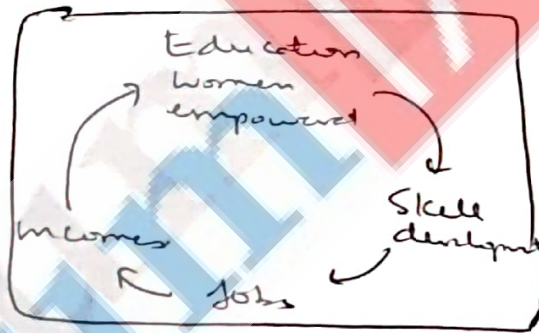 Education
women
empowered
Skill
development
Jobs
incomes